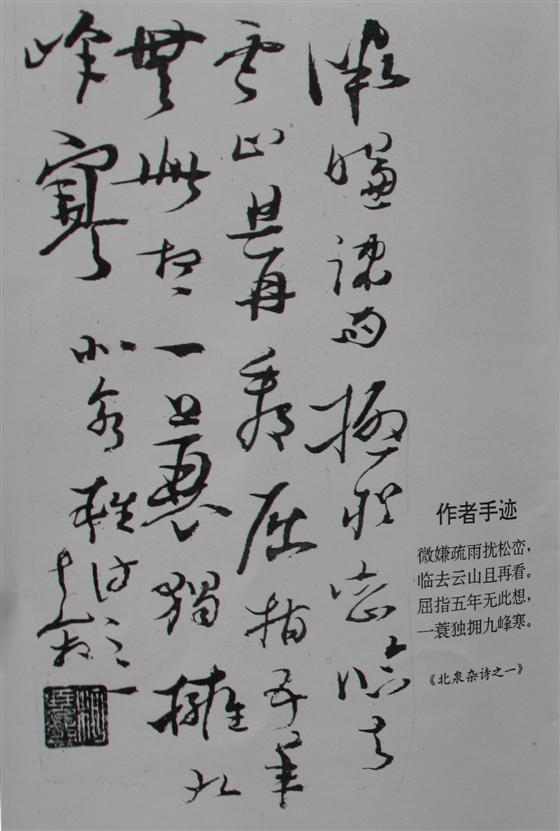 微嫌疎雨擾松巒臨去
雲山且再看屈指五年
無此想一蓑獨擁九
峰寒
北泉雜詩之一
作者手迹
微嫌疏雨扰松峦，
临去云山且再看。
屈指五年无此想，
一蓑独拥九峰寒。
《北泉杂诗之一》